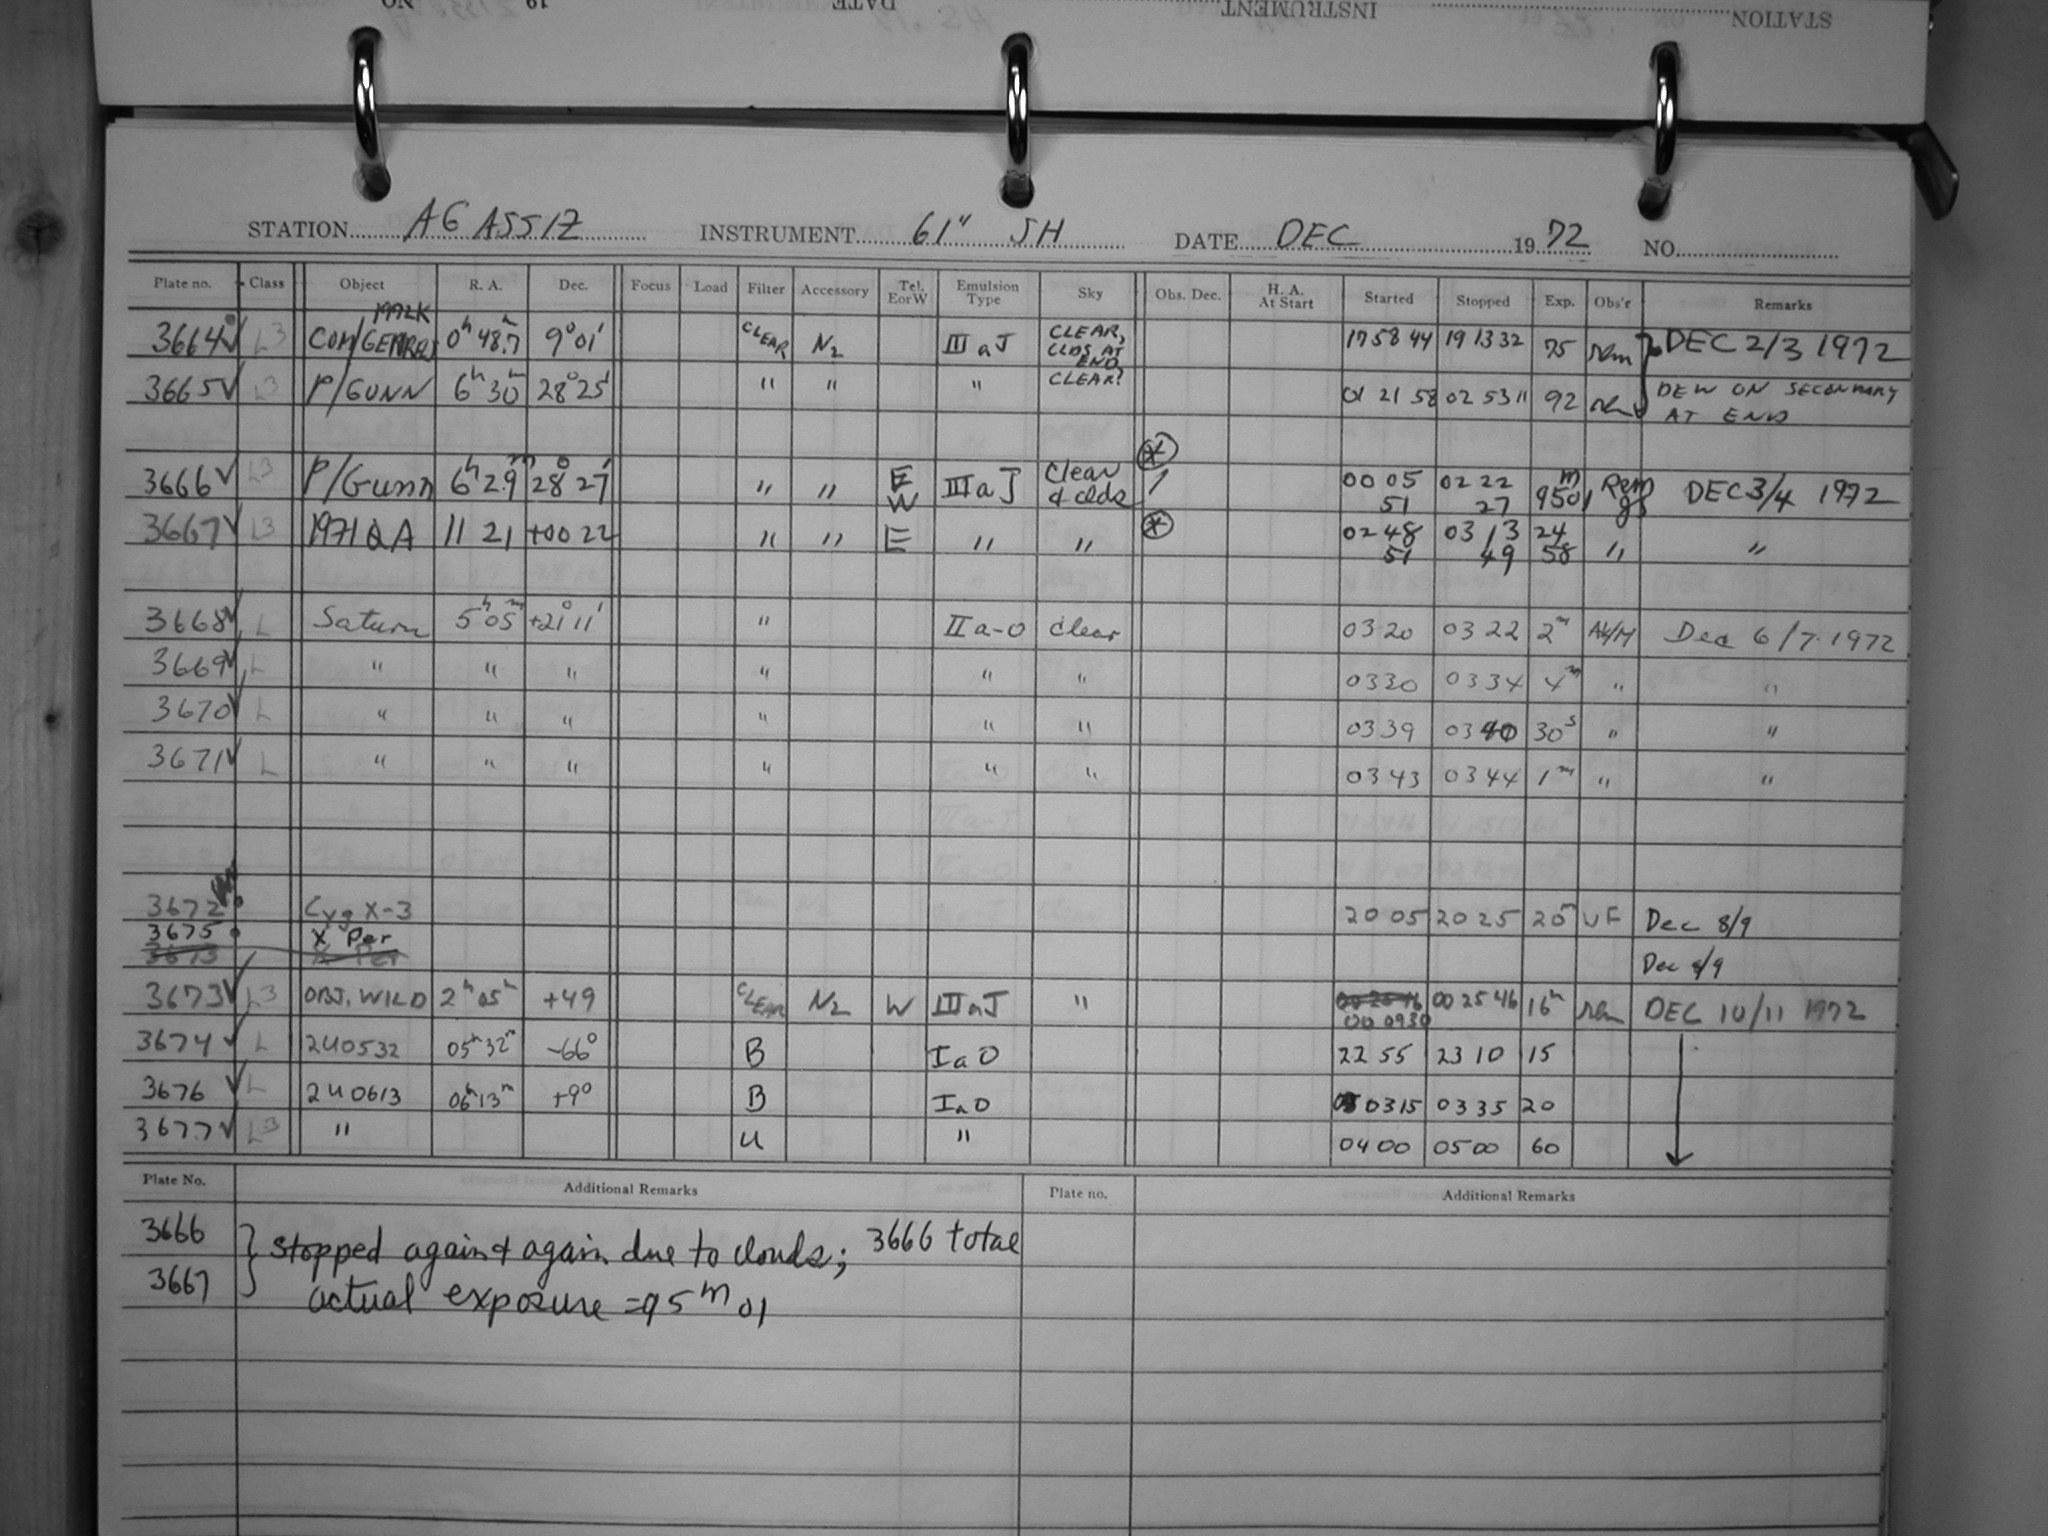 STATION INSTRUMENT DATE 19 NO
STATION AGASSIZ INSTRUMENT 61" JH DATE DEC 1972 NO.
Plate no. Class Object R. A. Dec. Focus Load Filter Accessory Tel. EorW Emulsion Type Sky Obs. Dec. H. A. At Start Started Stopped Exp. Obs'r Remarks
3664 L3 1972K 0h 48.7 9° 01' CLEAR N2 III a J CLEAR, CLDS AT END 17 58 44 19 13 32 75 rem DEC 2/3 1972
3665 L3 P/GUNN 6h 30m 28° 25' " " " CLEAR? 01 21 58 02 53 11 92 rem DEW ON SECONDARY AT END
3666 L3 P/Gunn 6h 29m 28° 27' " " E W III a J Clear & clds 00 05 51 02 22 27 95m01 Rem DEC 3/4 1972
3667 L3 1971QA 11 21 +00 22 " " E " " 02 48 51 03 13 49 24 58 " "
3668 L Saturn 5h 05m +21° 11' " II a-O Clear 03 20 03 22 2m Dec 6/7 1972
3669 L " " " " " " 03 30 03 34 4m " "
3670 L " " " " " " 03 39 03 40 30s " "
3671 L " " " " " " 03 43 03 44 1m " "
3672 Cyg X-3 20 05 20 25 20m UF Dec 8/9
3675 X Per
3673 X Per Dec 8/9
3673 L3 OBJ. WILD 2h 05m +49 CLEAR N2 W III a J " 00 09 30 00 25 46 16m rem DEC 10/11 1972
3674 L 2U0532 05h 32m -66° B I a O 22 55 23 10 15
3676 L 2U0613 06h 13m +9° B I a O 03 15 03 35 20
3677 L3 " U " 04 00 05 00 60
Plate No. Additional Remarks Plate no. Additional Remarks
3666 stopped again & again due to clouds; 3666 total
3667 actual exposure = 95m 01